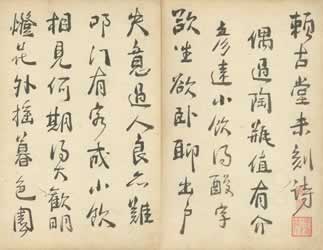 賴古堂未刻詩
偶過陶瓶值有介
彥遠小飲得酸字
欲坐欲臥聊出戶
失意過人良亦難
叩門有客成小飲
相見何期得大歡明
燈花外搖暮色園